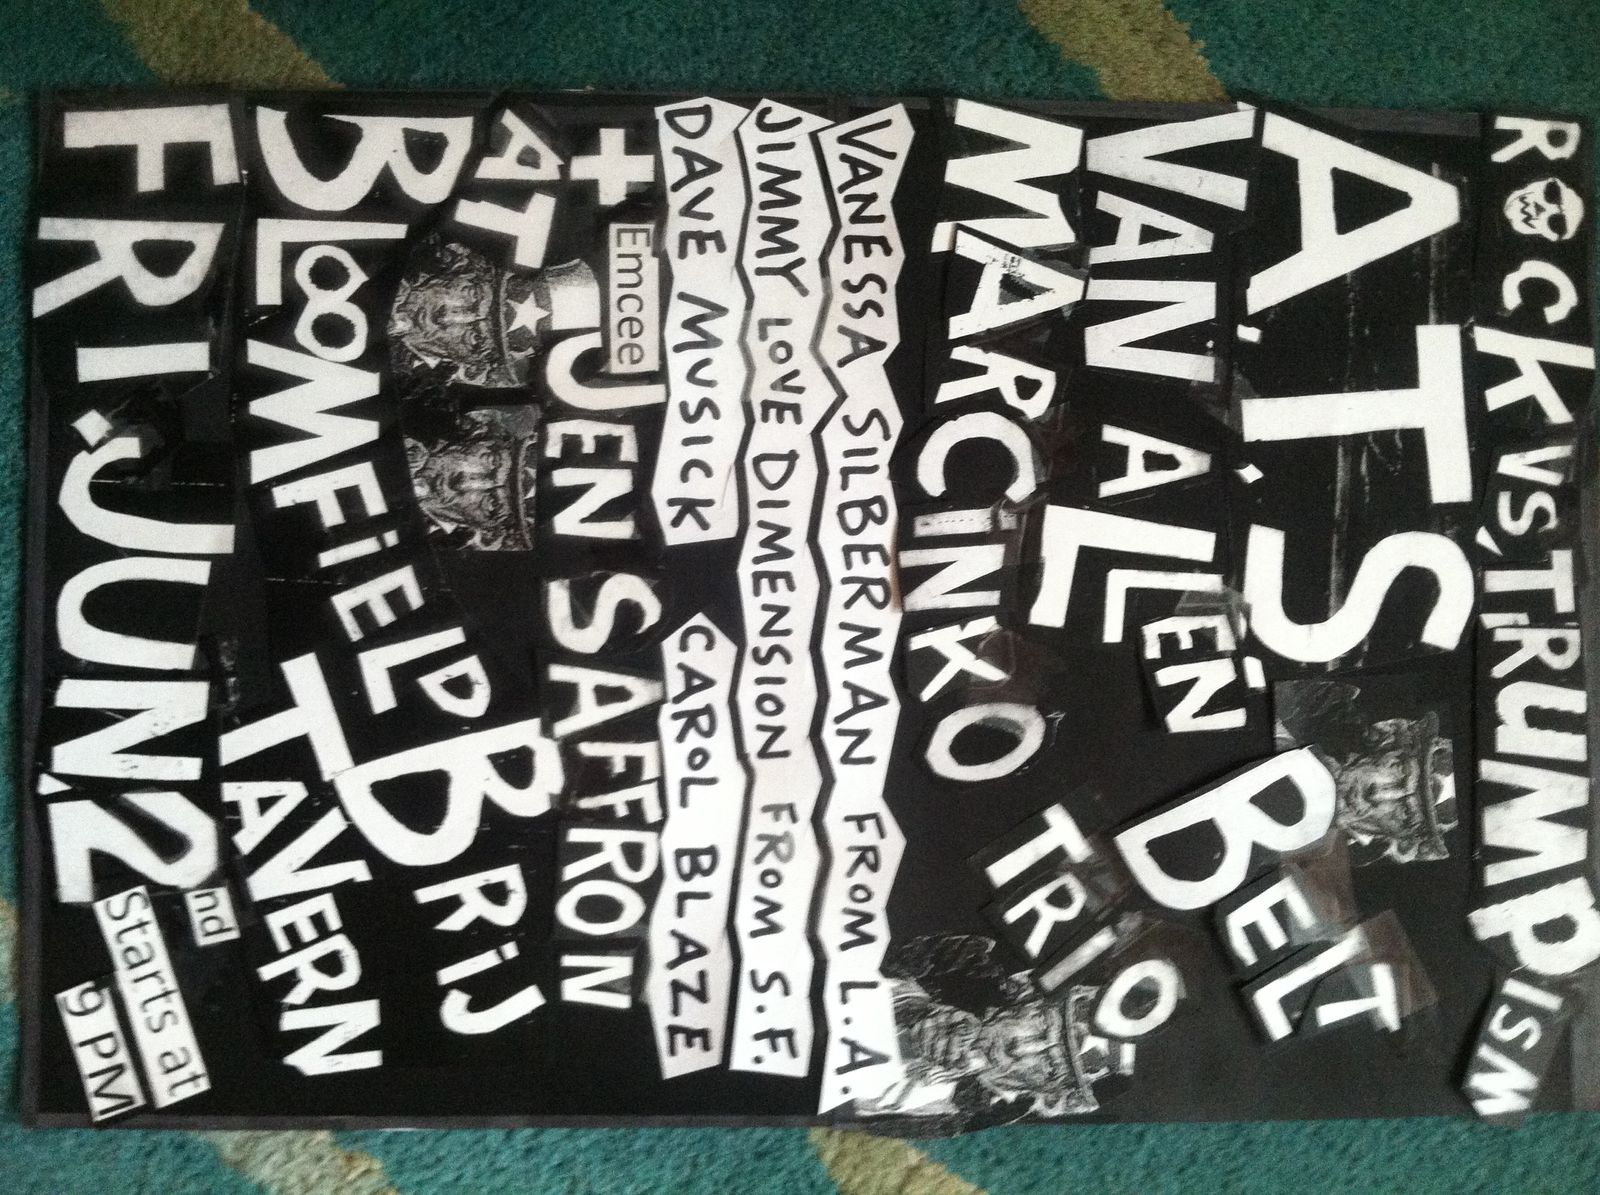 ROCK VS. TRUMPISM
A.T.S
VAN ALLEN BELT
MARCINKO TRIO
VANESSA SILBERMAN FROM L.A.
JIMMY LOVE DIMENSION FROM S.F.
DAVE MUSICK CAROL BLAZE
+ Emcee JEN SAFFRON
AT
BLOOMFiELD BRiJ
TAVERN
FRI. JUN. 2nd
Starts at
9 PM